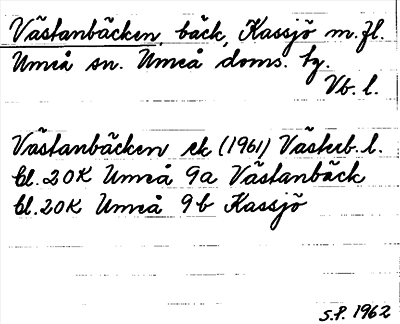 Västanbäcken, bäck, Kassjö m. fl.
Umeå sn. Umeå doms. tg.
Vb. l.
Västanbäcken ek (1961) Västerb. l.
bl. 20K Umeå 9a Västanbäck
bl. 20K Umeå 9b Kassjö
S.P. 1962